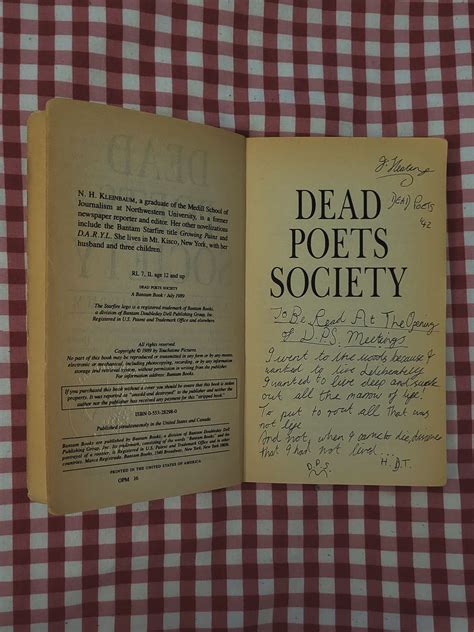 N. H. KLEINBAUM, a graduate of the Medill School of
Journalism at Northwestern University, is a former
newspaper reporter and editor. Her other novelizations
include the Bantam Starfire title Growing Pains and
D.A.R.Y.L. She lives in Mt. Kisco, New York, with her
husband and three children.
RL 7, IL age 12 and up
DEAD POETS SOCIETY
A Bantam Book / July 1989
The Starfire logo is a registered trademark of Bantam Books,
a division of Bantam Doubleday Dell Publishing Group, Inc.
Registered in U.S. Patent and Trademark Office and elsewhere.
All rights reserved.
Copyright © 1989 by Touchstone Pictures.
No part of this book may be reproduced or transmitted in any form or by any means,
electronic or mechanical, including photocopying, recording, or by any information
storage and retrieval system, without permission in writing from the publisher.
For information address: Bantam Books.
If you purchased this book without a cover you should be aware that this book is
stolen property. It was reported as "unsold and destroyed" to the publisher and neither the
author nor the publisher has received any payment for this "stripped book."
ISBN 0-553-28298-0
Published simultaneously in the United States and Canada
Bantam Books are published by Bantam Books, a division of Bantam Doubleday Dell
Publishing Group, Inc. Its trademark, consisting of the words "Bantam Books" and the
portrayal of a rooster, is Registered in U.S. Patent and Trademark Office and in other
countries. Marca Registrada. Bantam Books,
New York, New York
PRINTED IN THE UNITED STATES OF AMERICA
OPM 16
DEAD POETS
'42
DEAD
POETS
SOCIETY
To Be Read At The Opening
of D.P.S. Meetings
I went to the woods because I
wanted to live deliberately
I wanted to live deep and suck
out all the marrow of life!
To put to rout all that was
not life
And not, when I came to die, discover
that I had not lived...
D.P.S.
H. D.T.